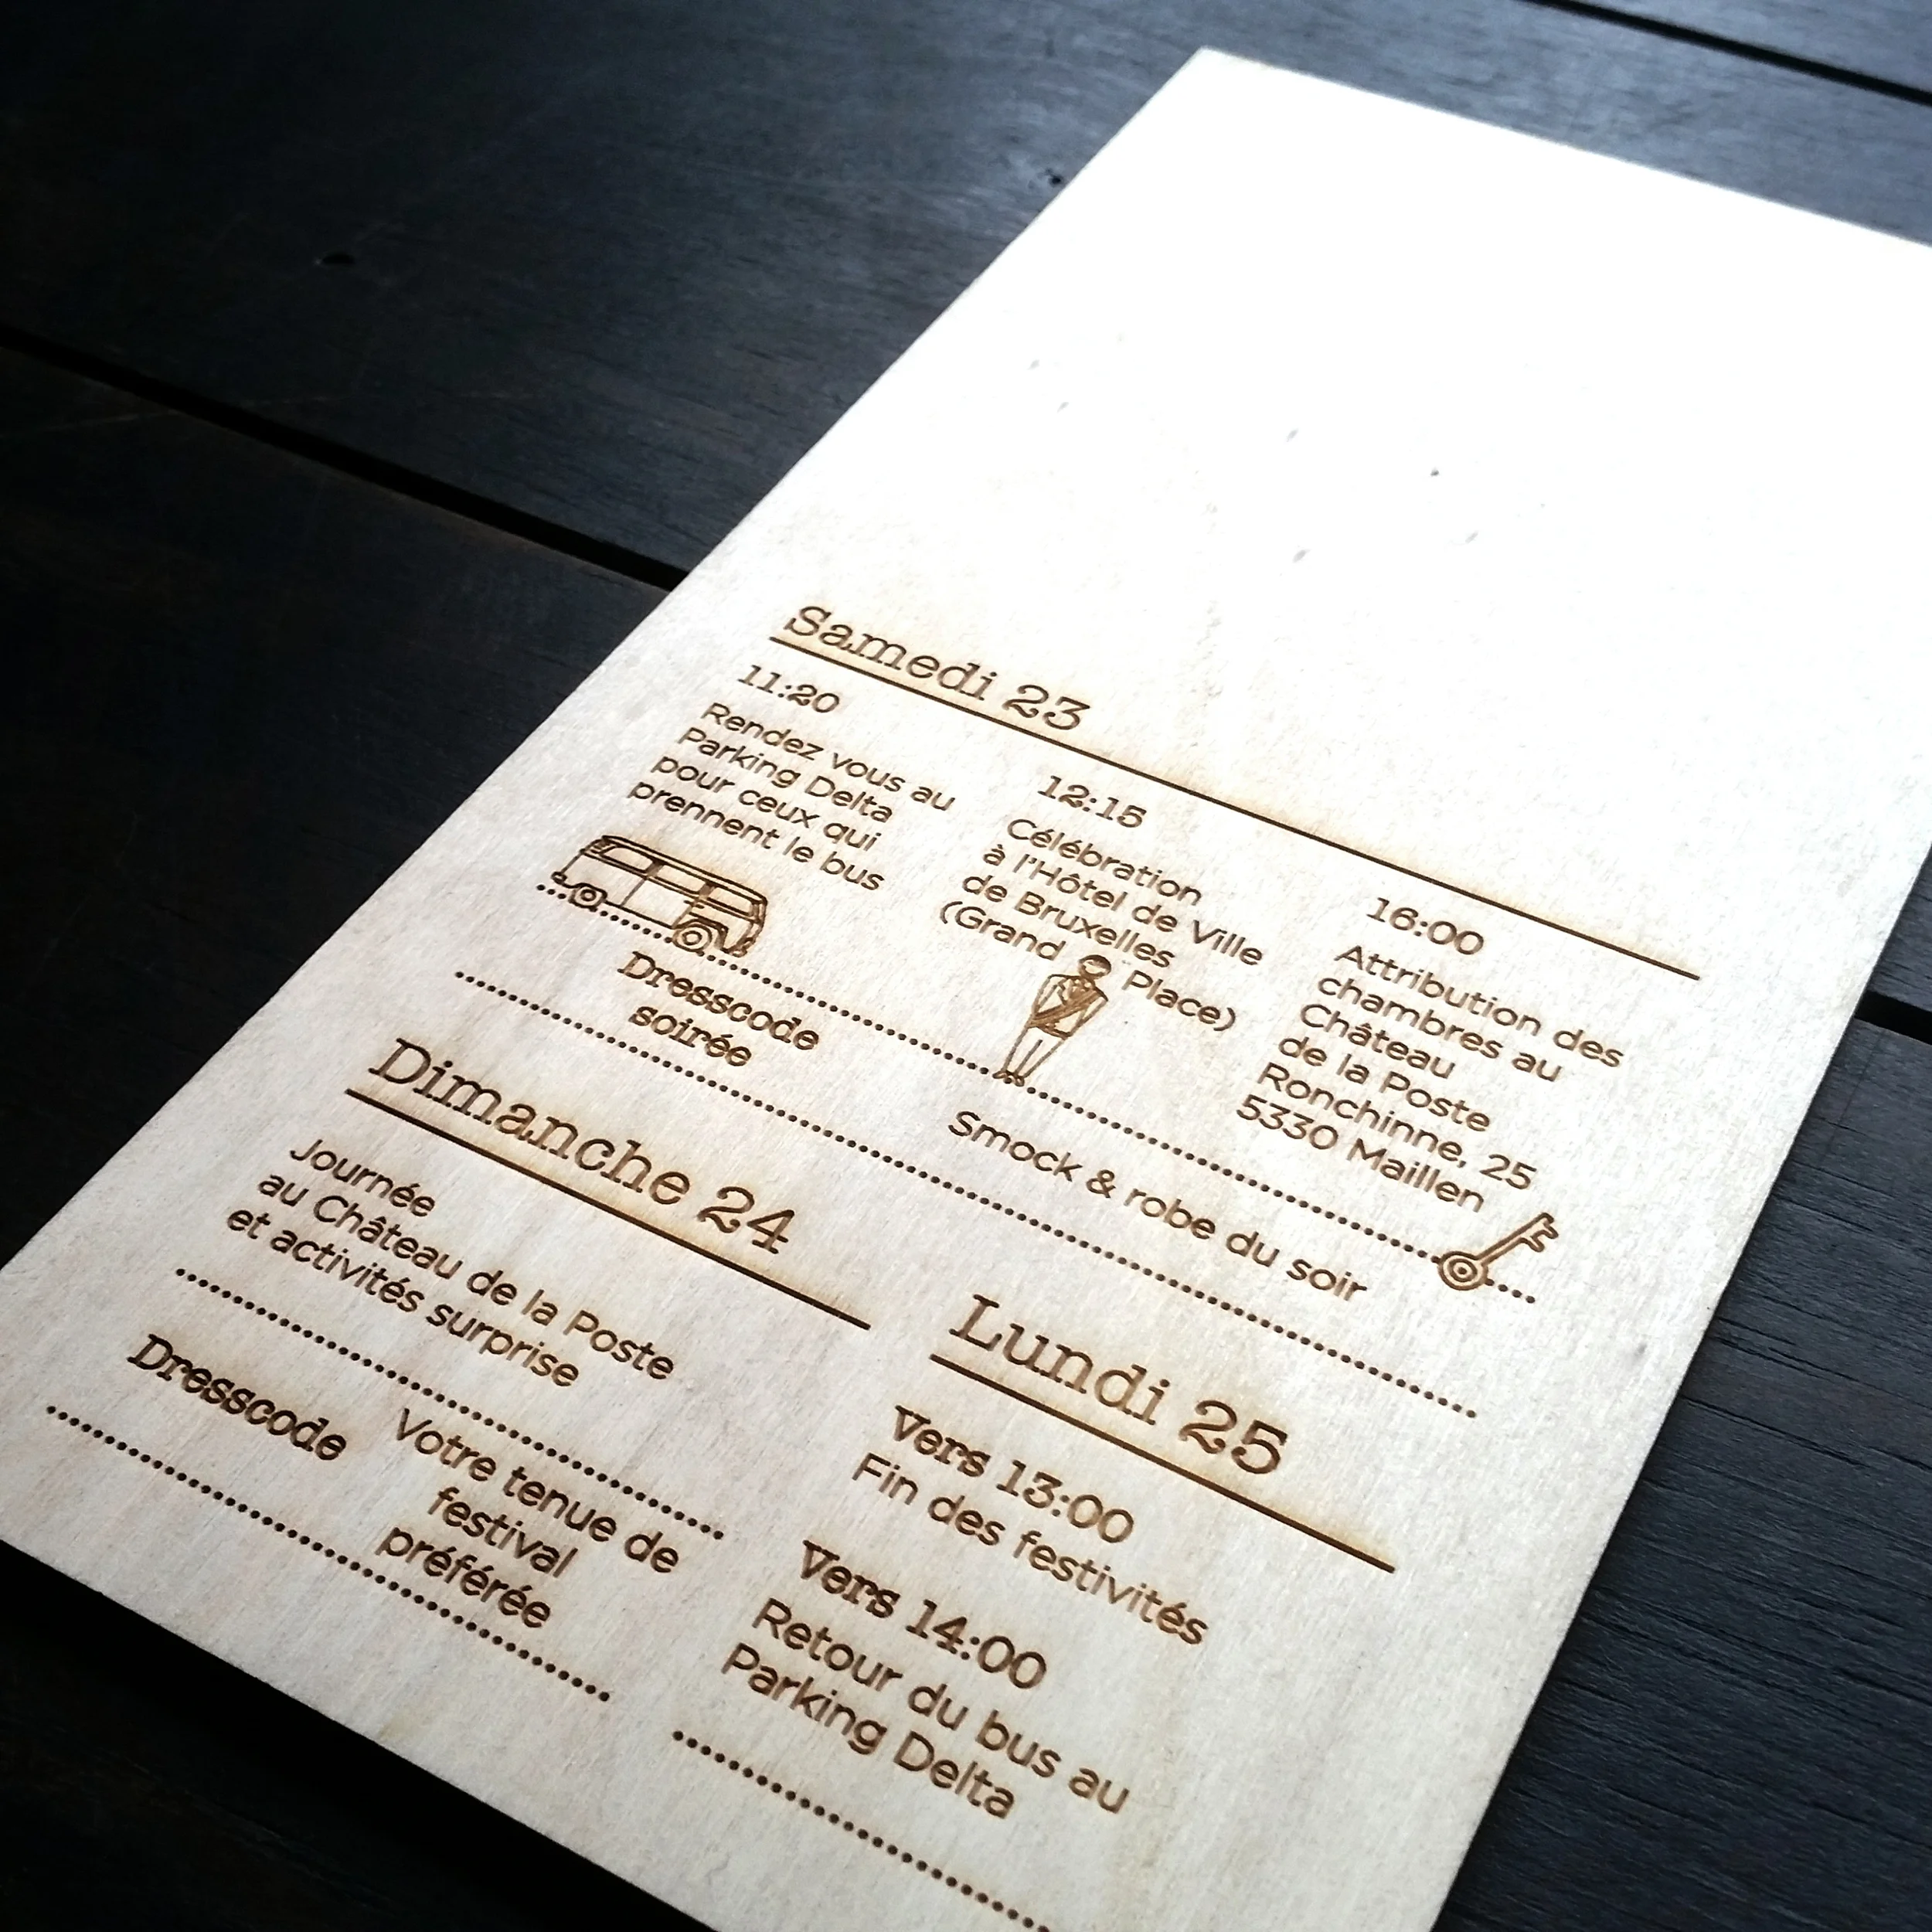 Samedi 23
11:20
Rendez vous au
Parking Delta
pour ceux qui
prennent le bus
12:15
Célébration
à l'Hôtel de Ville
de Bruxelles
(Grand Place)
16:00
Attribution des
chambres au
Château
de la Poste
Ronchinne, 25
5330 Maillen
Dresscode
soirée
Smock & robe du soir
Dimanche 24
Journée
au Château de la Poste
et activités surprise
Dresscode
Votre tenue de
festival
préférée
Lundi 25
Vers 13:00
Fin des festivités
Vers 14:00
Retour du bus au
Parking Delta